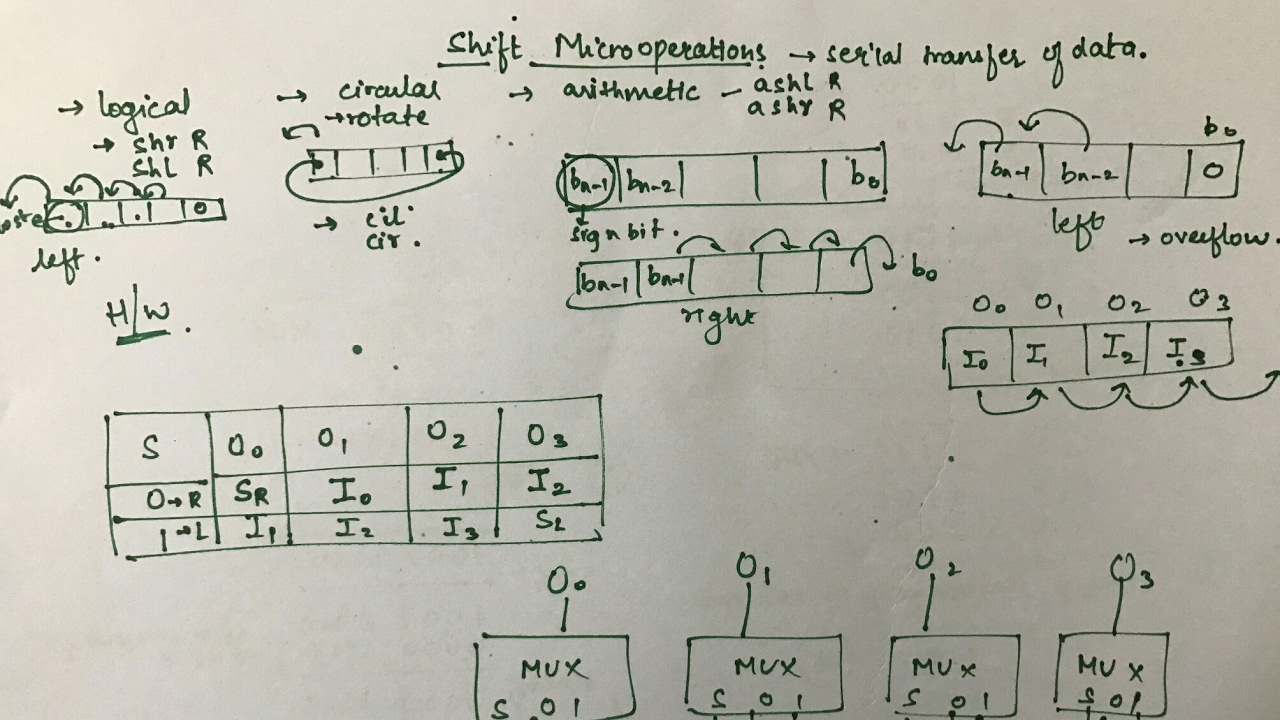 Shift Microoperations → serial transfer of data.
→ logical
→ shr R
shl R
left.
→ circular
→rotate
→ cil
cir.
→ arithmetic - ashl R
ashr R
bn-1 bn-2 b0
sign bit.
bn-1 bn-1 b0
right
b0
bn-1 bn-2 0
left → overflow.
H/W.
O0 O1 O2 O3
I0 I1 I2 I3
S O0 O1 O2 O3
0→R SR I0 I1 I2
1→L I1 I2 I3 SL
O0 O1 O2 O3
MUX MUX MUX MUX
S 0 1 S 0 1 S 0 1 S 0 1